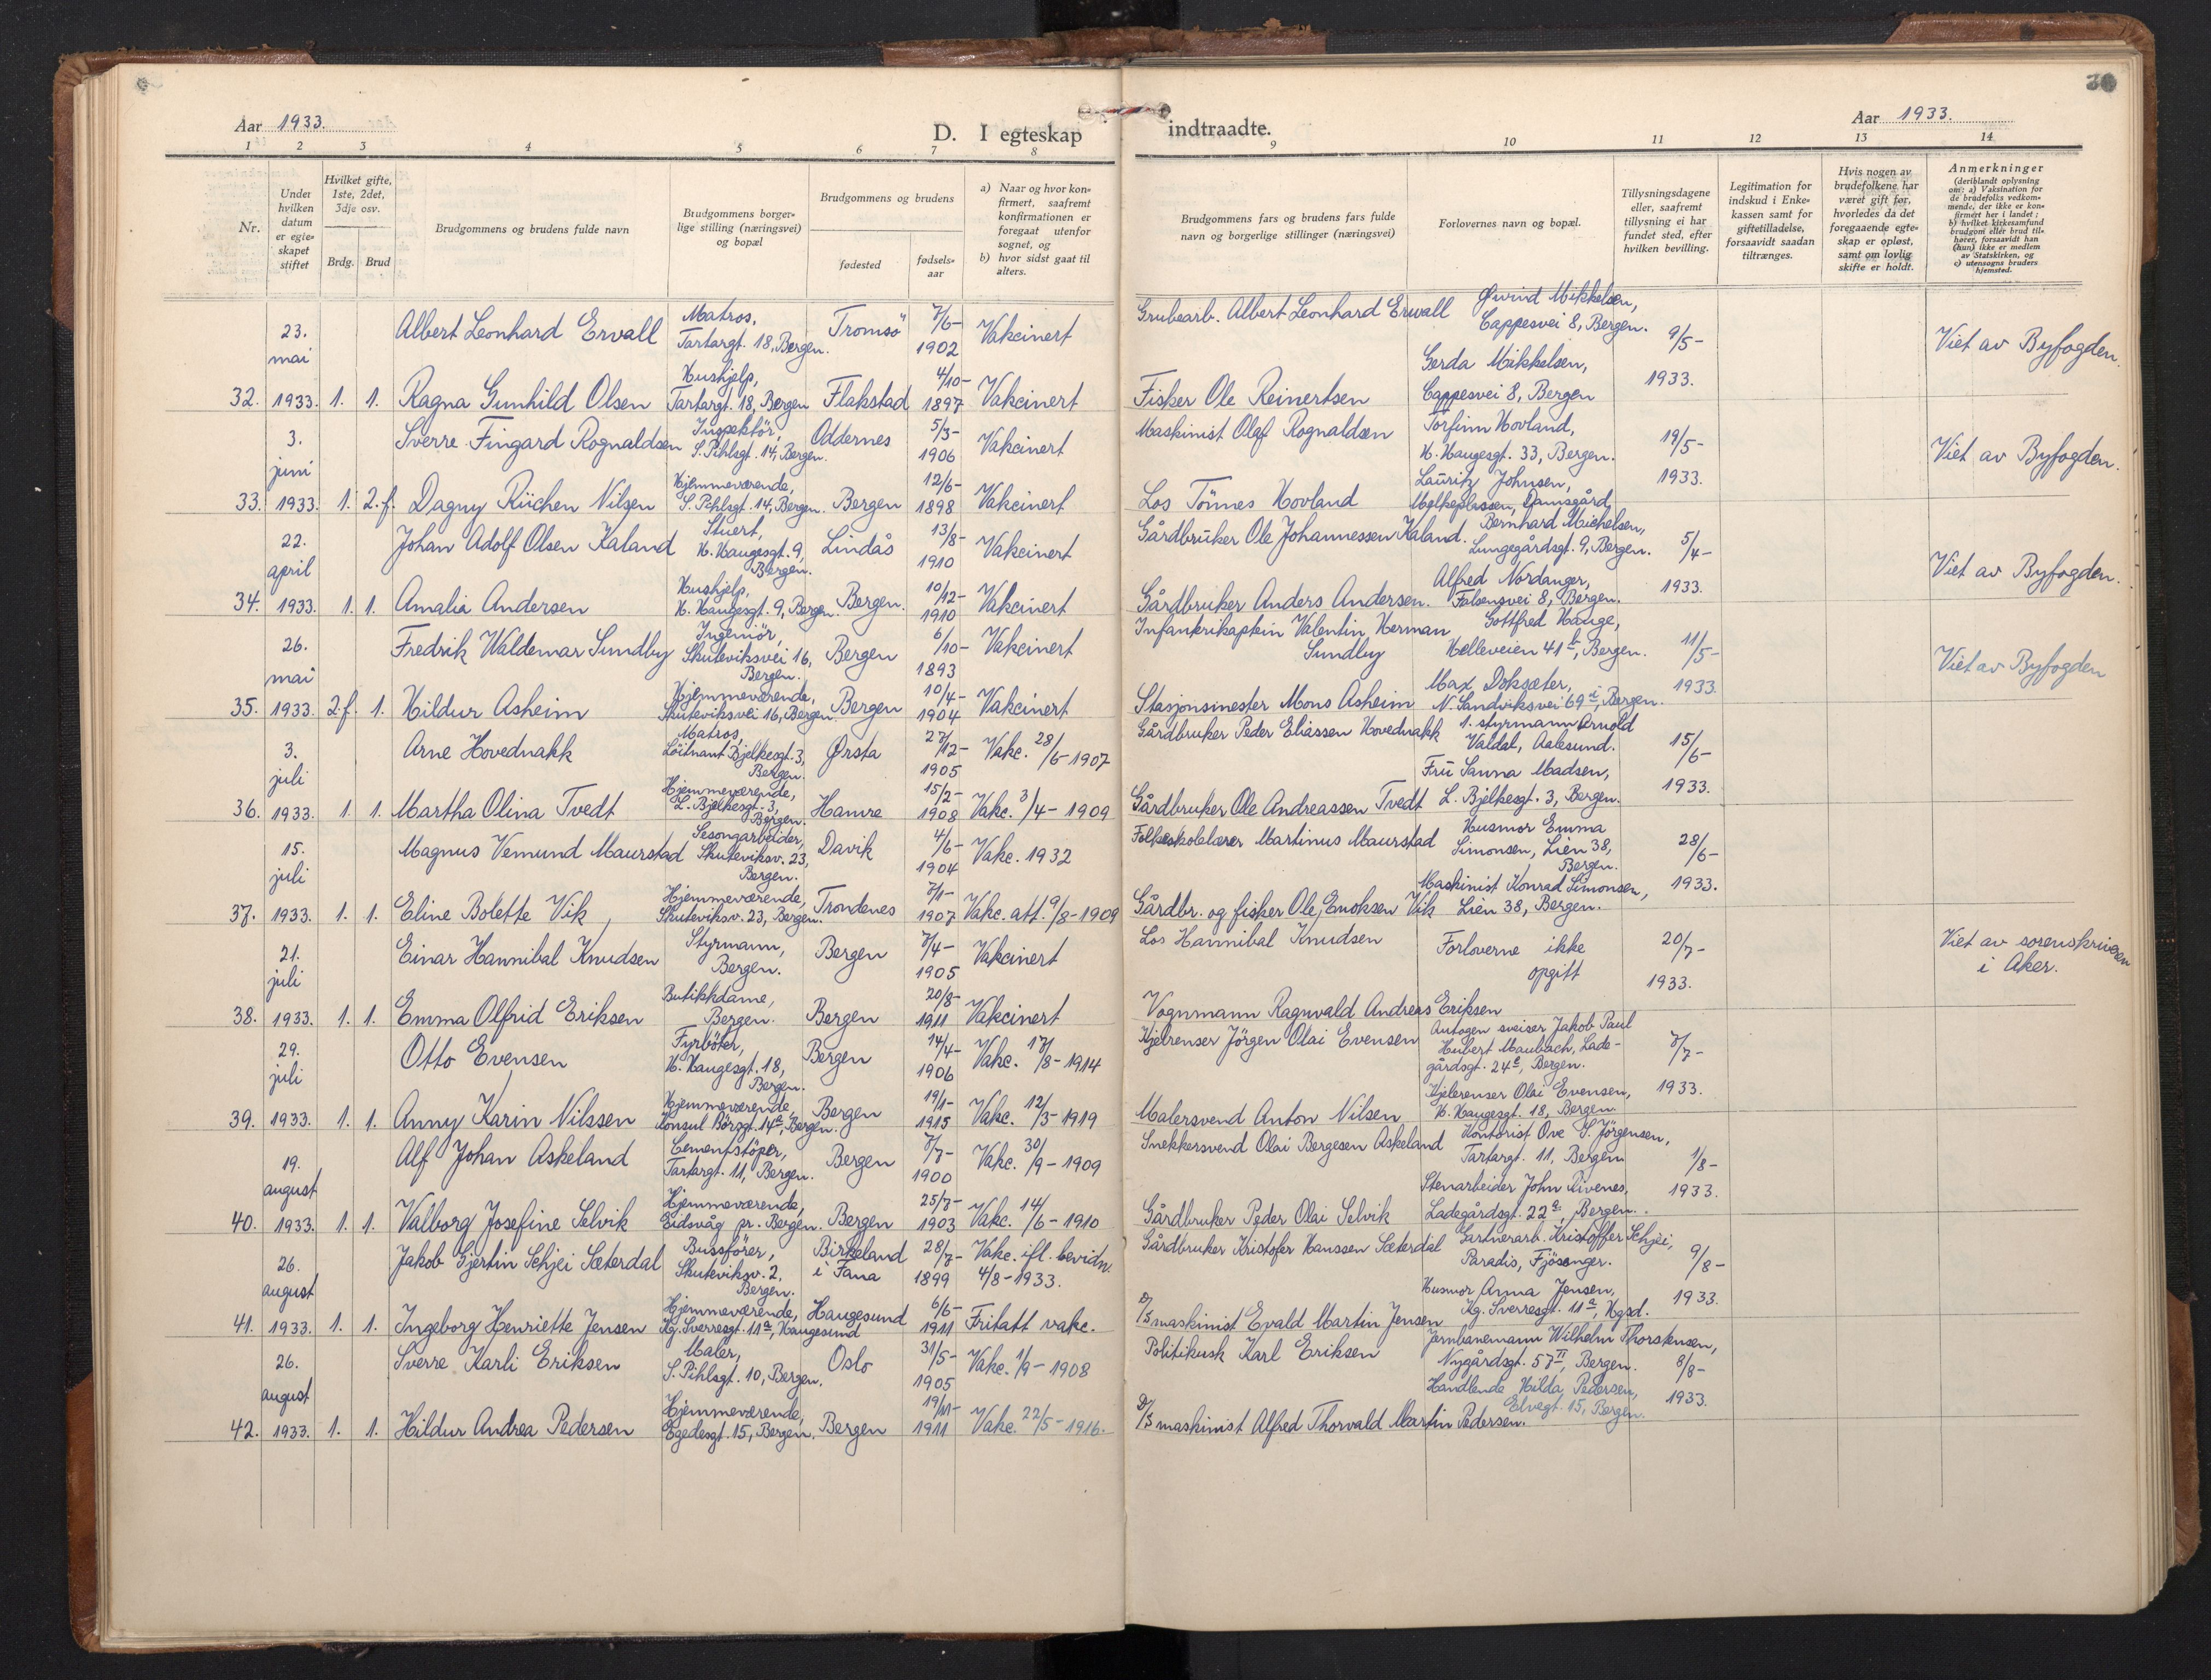 30
Aar 1933.
D. I egteskap indtraadte.
Aar 1933.
1 2 3 4 5 6 7 8 9 10 11 12 13 14
Nr.
Under hvilken datum er egteskapet stiftet
Hvilket gifte, 1ste, 2det, 3dje osv.
Brdg. Brud
Brudgommens og brudens fulde navn
Brudgommens borgerlige stilling (næringsvei) og bopæl
Brudgommens og brudens
fødested
fødselsaar
a) Naar og hvor konfirmert, saafremt konfirmationen er foregaat utenfor sognet, og
b) hvor sidst gaat til alters.
Brudgommens fars og brudens fars fulde navn og borgerlige stillinger (næringsvei)
Forlovernes navn og bopæl.
Tillysningsdagene eller, saafremt tillysning ei har fundet sted, efter hvilken bevilling.
Legitimation for indskud i Enkekassen samt for giftetilladelse, forsaavidt saadan tiltrænges.
Hvis nogen av brudefolkene har været gift før, hvorledes da det foregaaende egteskap er opløst, samt om lovlig skifte er holdt.
Anmerkninger
(deriblandt oplysning om: a) Vaksination for de brudefolks vedkommende, der ikke er konfirmert her i landet; b) hvilket kirkesamfund brudgom eller brud tilhører, forsaavidt han (hun) ikke er medlem av Statskirken, og c) utensogns bruders hjemsted.
23. mai Albert Leonhard Ervall Matros, Tartargt. 18, Bergen. Tromsö 7/6- 1902 Vakcinert Grubearb. Albert Leonhard Ervall Øivind Mikkelsen, Cappesvei 8, Bergen. 9/5- Viet av Byfogden.
32. 1933. 1. 1. Ragna Gunhild Olsen Hushjelp, Tartargt. 18, Bergen Flakstad 4/10- 1897 Vakcinert Fisker Ole Reinertsen Gerda Mikkelsen, Cappesvei 8, Bergen 1933.
3. juni Sverre Fingard Rognaldsen Inspektör, S. Pihlsgt. 14, Bergen. Oddernes 5/3- 1906 Vakcinert Maskinist Olaf Rognaldsen Torfinn Hovland, H. Haugesgt. 33, Bergen. 19/5- Viet av Byfogden.
33. 1933. 1. 2.f. Dagny Rüchen Nilsen Hjemmeværende, S. Pihlsgt. 14, Bergen. Bergen 12/6- 1898 Vakcinert Los Tönnes Hovland Lauritz Johnsen, Melkeplassen, Damsgård 1933.
22. april Johan Adolf Olsen Kaland Stuert, H. Haugesgt. 9, Bergen. Lindås 13/8- 1910 Vakcinert Gårdbruker Ole Johannessen Kaland. Bernhard Michelsen, Lungegårdsgt. 9, Bergen. 5/4- Viet av Byfogden.
34. 1933. 1. 1. Amalia Andersen Hushjelp, H. Haugesgt. 9, Bergen. Bergen. 10/12- 1910 Vakcinert Gårdbruker Anders Andersen. Alfred Nordanger, Falsensvei 8, Bergen. 1933.
26. mai Fredrik Waldemar Sundby Ingeniör, Skuteviksvei 16, Bergen. Bergen 6/10- 1893 Vakcinert Infanterikaptein Valentin Herman Sundby Gottfred Hauge, Helleveien 41b, Bergen. 11/5- Viet av Byfogden
35. 1933. 2.f. 1. Hildur Asheim Hjemmeværende, Skuteviksvei 16, Bergen. Bergen 10/4- 1904 Vakcinert Stasjonsmester Mons Asheim Max Doksæter, N. Sandviksvei 69, Bergen. 1933.
3. juli Arne Hovednakk Matros, Löitnant Bjelkesgt. 3, Bergen. Ørsta 27/12- 1905 Vakc. 28/6-1907 Gårdbruker Peder Eliassen Hovednakk 1. styrmann Arnold Valdal, Aalesund. 15/6-
36. 1933. 1. 1. Martha Olina Tvedt Hjemmeværende, L. Bjelkesgt. 3, Bergen. Hamre 15/2- 1908 Vakc. 3/4-1909 Gårdbruker Ole Andreassen Tvedt Fru Sanna Madsen, L. Bjelkesgt. 3, Bergen. 1933.
15. juli Magnus Vemund Maurstad Sesongarbeider, Skuteviksv. 23, Bergen. Davik 4/6- 1904 Vakc. 1932 Folkeskolelærer Martinus Maurstad Husmor Emma Simonsen, Lien 38, Bergen. 28/6-
37. 1933. 1. 1. Eline Bolette Vik Hjemmeværende, Skuteviksv. 23, Bergen. Trondenes 7/1- 1907 Vakc. att. 9/8-1909 Gårdbr. og fisker Ole Enoksen Vik Maskinist Konrad Simonsen, Lien 38, Bergen. 1933.
21. juli Einar Hannibal Knudsen Styrmann, Bergen. Bergen 7/4- 1905 Vakcinert Los Hannibal Knudsen Forloverne ikke opgitt 20/7- 1933. Viet av sorenskriveren i Aker.
38. 1933. 1. 1. Emma Olfrid Eriksen Butikkdame, Bergen. Bergen 20/8- 1911 Vakcinert Vognmann Ragnvald Andreas Eriksen
29. juli Otto Evensen Fyrböter, H. Haugesgt. 18, Bergen. Bergen 14/4- 1906 Vakc. 17/8-1914 Kjelrenser Jörgen Olai Evensen Autogen sveiser Jakob Paul Hubert Maubach, Ladegårdsgt. 24c, Bergen. 7/7-
39. 1933. 1. 1. Anny Karin Nilssen Hjemmeværende, Konsul Börsgt. 14a, Bergen. Bergen 19/1- 1915 Vakc. 12/5-1919 Malersvend Anton Nilsen Kjelerenser Olai Evensen, H. Haugesgt. 18, Bergen 1933.
19. august Alf Johan Askeland Cementstöper, Tartargt. 11, Bergen. Bergen 7/7- 1900 Vakc. 30/9-1909 Snekkersvend Olai Bergesen Askeland Kontorist Ove S. Jörgensen, Tartargt. 11, Bergen 1/8-
40. 1933. 1. 1. Valborg Josefine Selvik Hjemmeværende, Eidsvåg pr. Bergen. Bergen 25/7- 1903 Vakc. 14/6-1910 Gårdbruker Peder Olai Selvik Stenarbeider John Rivenes, Ladegårdsgt. 22a, Bergen. 1933.
26. august Jakob Gjertin Schjei Sæterdal Bussförer, Skuteviksv. 2, Bergen. Birkeland i Fana 28/7- 1899 Vakc. ifl. bevidn. 4/8-1933. Gårdbruker Kristofer Hanssen Sæterdal Gartnerarb. Kristoffer Schjei, Paradis, Fjösanger. 9/8-
41. 1933. 1. 1. Ingeborg Henriette Jensen Hjemmeværende, Kg. Sverresgt. 11a, Haugesund Haugesund 6/6- 1911 Fritatt vakc. D/S maskinist Evald Martin Jensen Husmor Anna Jensen, Kg. Sverresgt. 11a, Hgsd. 1933.
26. august Sverre Karli Eriksen Maler, S. Pihlsgt. 10, Bergen. Oslo 31/5- 1905 Vakc. 1/9-1908 Politikusk Karl Eriksen Jernbanemann Wilhelm Thorstensen, Nygårdsgt. 57II, Bergen. 8/8-
42. 1933. 1. 1. Hildur Andrea Pedersen Hjemmeværende, Egedesgt. 15, Bergen. Bergen 19/11- 1911 Vakc. 22/5-1916. D/S maskinist Alfred Thorvald Martin Pedersen. Handlende Hilda Pedersen, Elvegt. 15, Bergen. 1933.